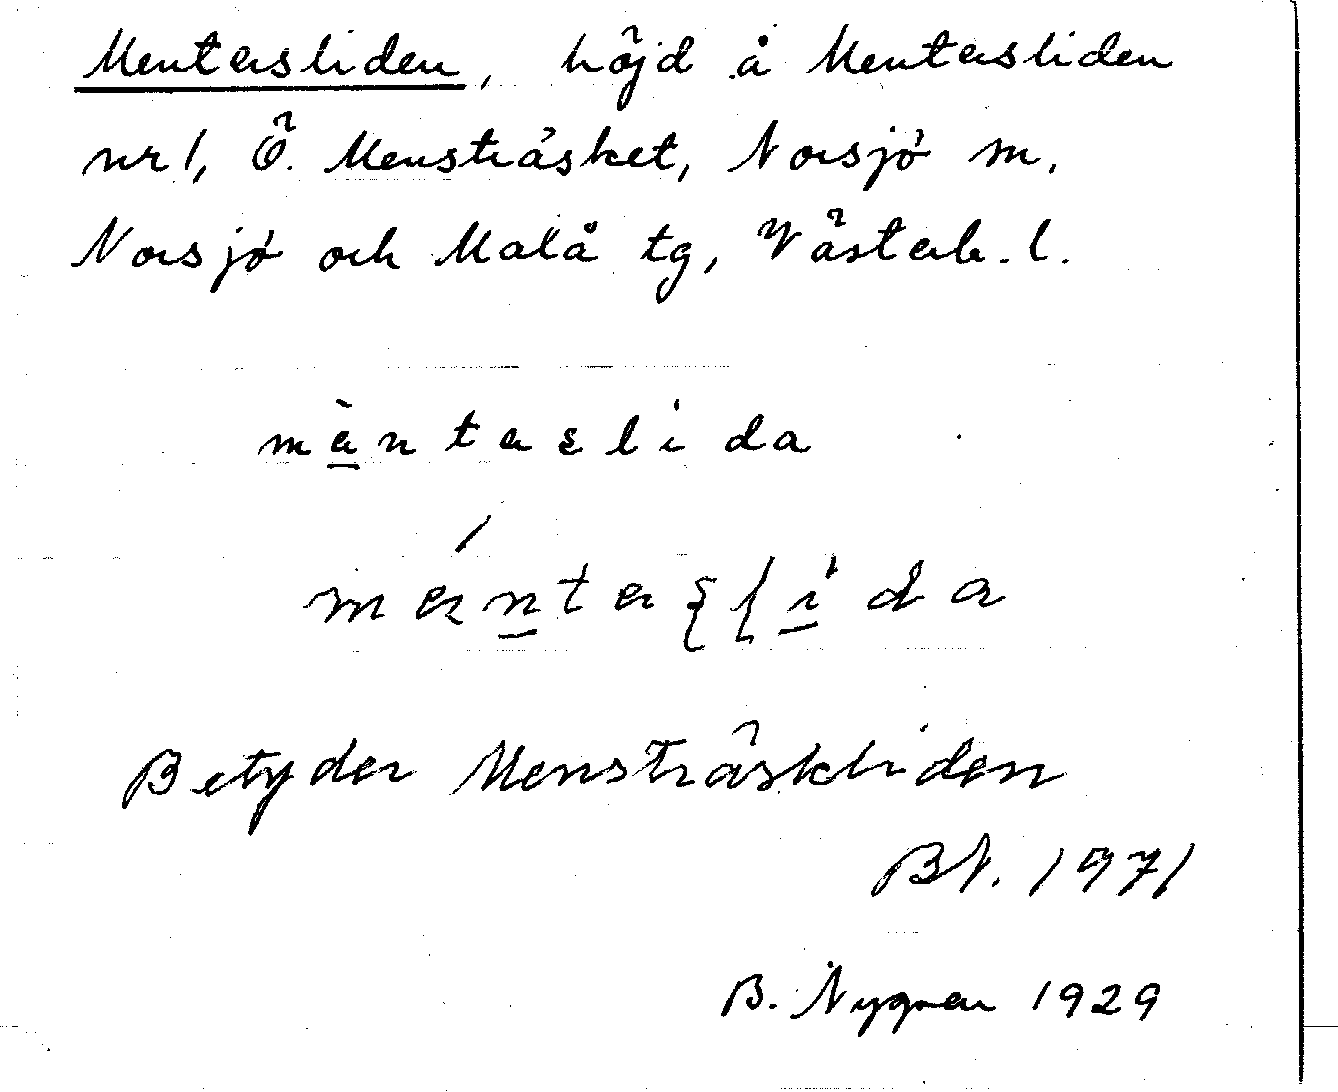 Mentersliden, höjd å Mentersliden
nr 1, Ö. Mensträsket, Norsjö sn,
Norsjö och Malå tg, Västerb. l.
mänterslida
Betyder Mensträskliden
BN. 1971
B. Nygren 1929